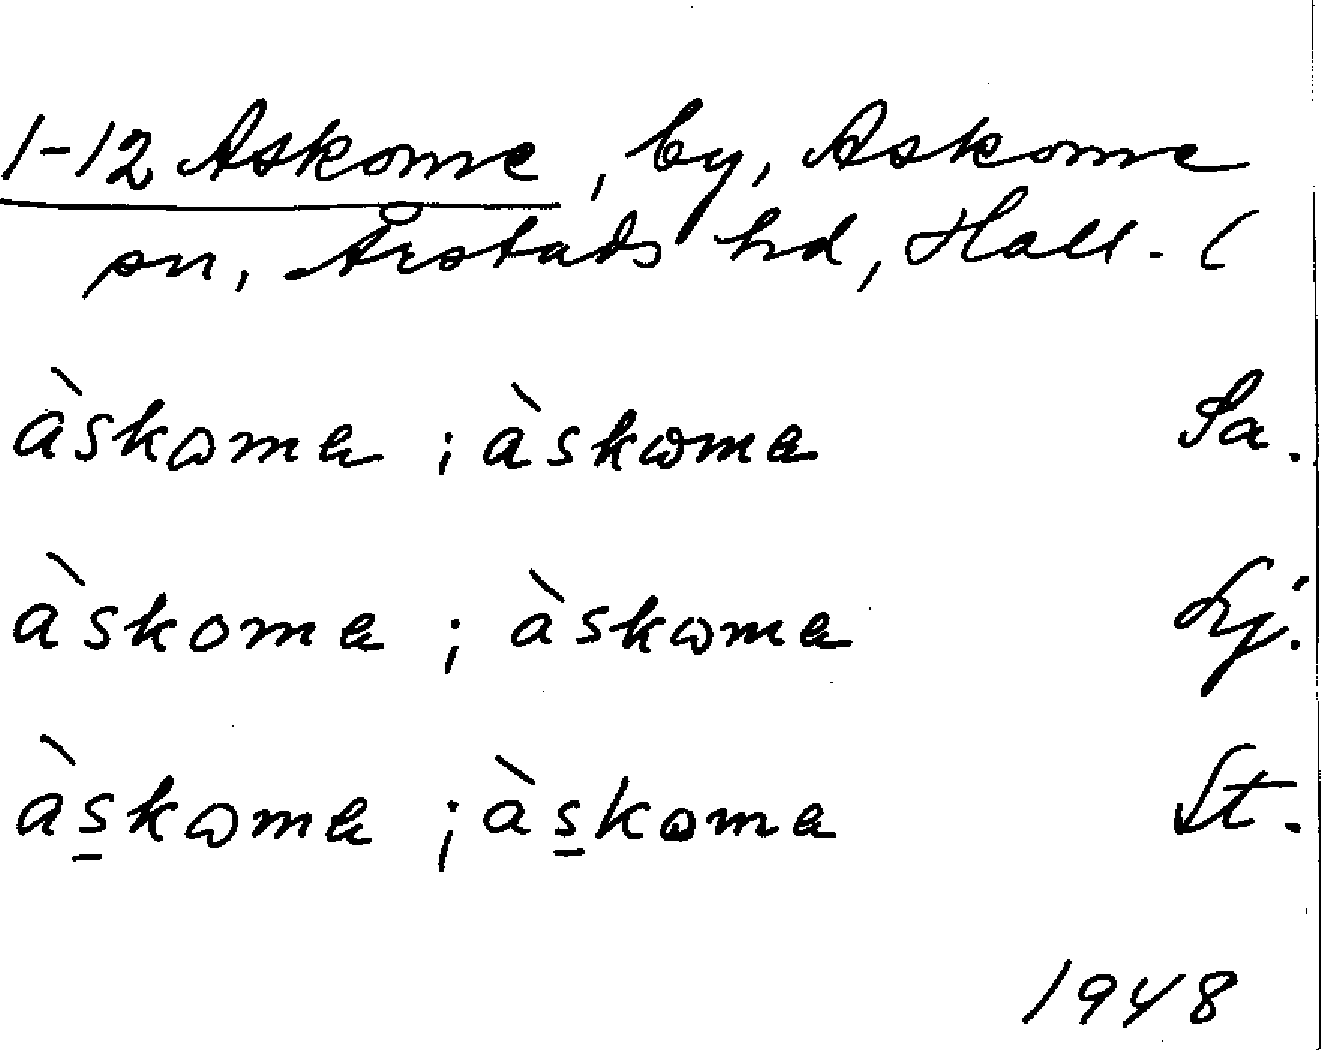 1-12 Askome, by, Askome
sn, Årstads hd, Hall. (
àskomа ; àskomа Sa.
àskomа ; àskomа Lj.
às̱komа ; às̱komа St.
1948